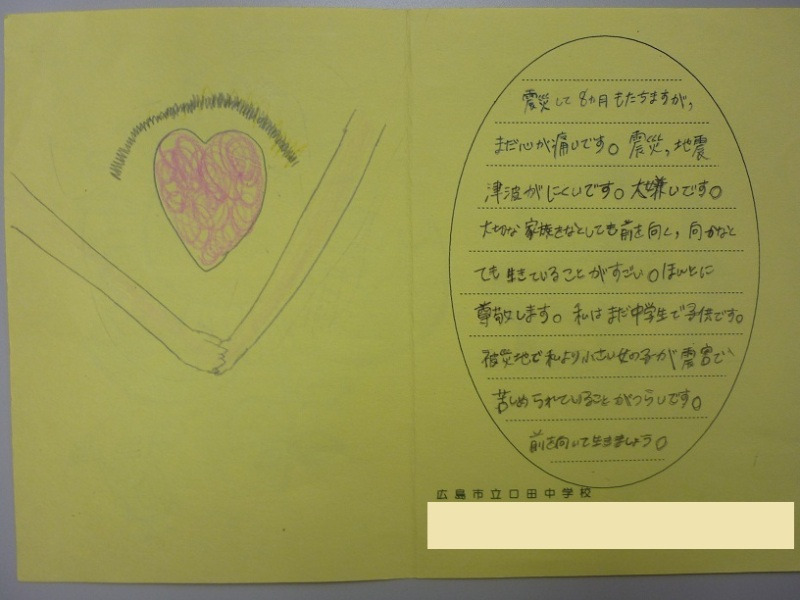 震災して8ヵ月もたちますが、
まだ心が痛いです。震災、地震
津波がにくいです。大嫌いです。
大切な家族をなとしても前を向く、向かなと
ても生きていることがすごい。ほんとに
尊敬します。私はまだ中学生で子供です。
被災地で私より小さい女の子が震害で
苦しめられていることがつらいです。
前を向いて生きましょう。
広島市立口田中学校